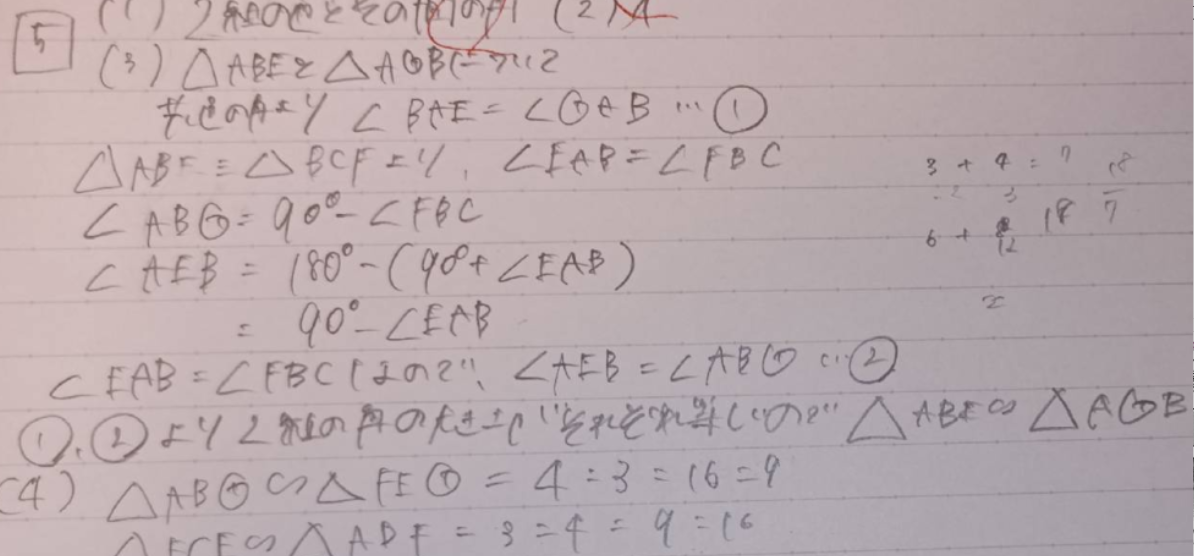 5 (1) 2組の辺とその間の角 (2) 4
(3) △ABEと△AGBについて
共通の角より ∠BAE = ∠GAB … ①
△ABE ≡ △BCFより、∠EAB = ∠FBC
∠ABG = 90° - ∠FBC
∠AEB = 180° - (90° + ∠EAB)
= 90° - ∠EAB
∠EAB = ∠FBCなので、∠AEB = ∠ABG … ②
①、②より2組の角の大きさがそれぞれ等しいので △ABE∽△AGB
(4) △ABG∽△FEG = 4:3 = 16:9
△FCE∽△ADF = 3:4 = 9:16
3 + 4 = 7
18
3
6 + 12
18
7
x